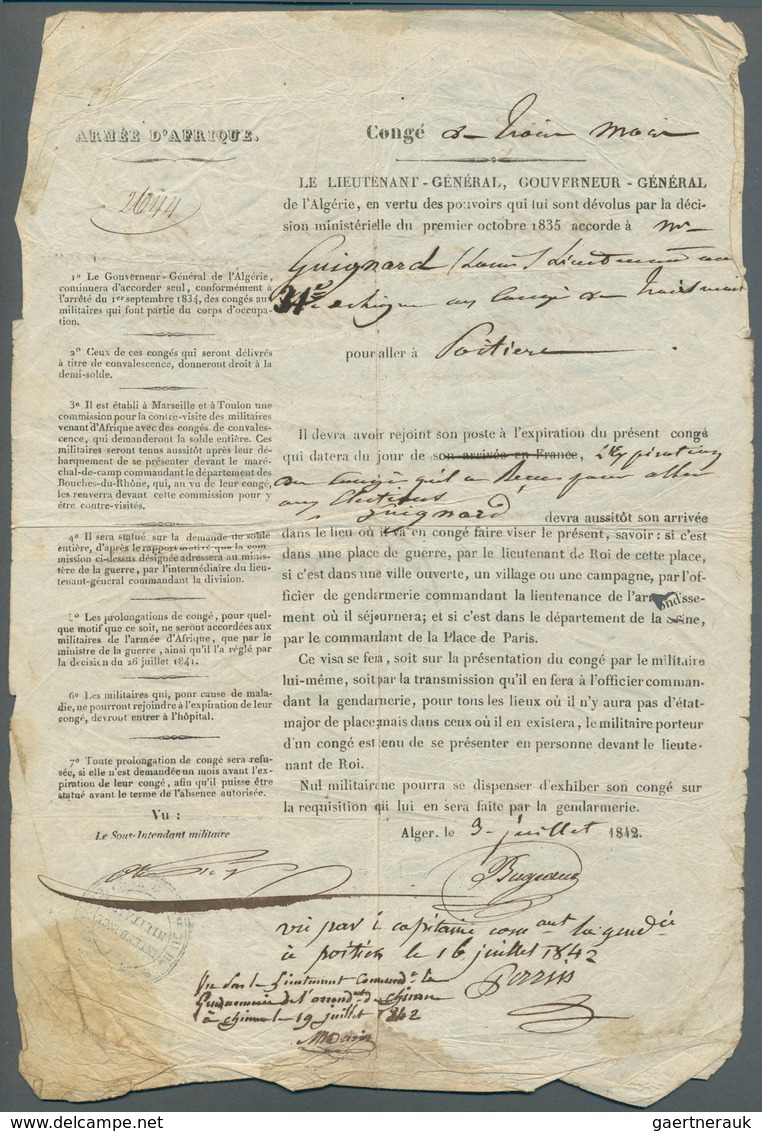 ARMÉE D'AFRIQUE.
2644
1º Le Gouverneur-Général de l'Algérie,
continuera d'accorder seul, conformément à
l'arrêté du 1er septembre 1834, des congés aux
militaires qui font partie du corps d'occupa-
tion.
2º Ceux de ces congés qui seront délivrés
à titre de convalescence, donneront droit à la
demi-solde.
3º Il est établi à Marseille et à Toulon une
commission pour la contre-visite des militaires
venant d'Afrique avec des congés de convales-
cence, qui demanderont la solde entière. Ces
militaires seront tenus aussitôt après leur dé-
barquement de se présenter devant le maré-
chal-de-camp commandant le département des
Bouches-du-Rhône, qui, au vu de leur congé,
les renverra devant cette commission pour y
être contre-visités.
4º Il sera statué sur la demande de solde
entière, d'après le rapport motivé que la com-
mission ci-dessus désignée adressera au minis-
tère de la guerre, par l'intermédiaire du lieu-
tenant-général commandant la division.
5º Les prolongations de congé, pour quel-
que motif que ce soit, ne seront accordées aux
militaires de l'armée d'Afrique, que par le
ministre de la guerre, ainsi qu'il l'a réglé par
la décision du 26 juillet 1841.
6º Les militaires qui, pour cause de mala-
die, ne pourront rejoindre à l'expiration de leur
congé, devront entrer à l'hôpital.
7º Toute prolongation de congé sera refu-
sée, si elle n'est demandée un mois avant l'ex-
piration de leur congé, afin qu'il puisse être
statué avant le terme de l'absence autorisée.
Vu :
Le Sous-Intendant militaire
Congé de trois mois
LE LIEUTENANT-GÉNÉRAL, GOUVERNEUR-GÉNÉRAL
de l'Algérie, en vertu des pouvoirs qui lui sont dévolus par la déci-
sion ministérielle du premier octobre 1835 accorde à Mr
Guignard (Louis) Lieutenant au
31e un congé de trois mois
pour aller à Poitiers
Il devra avoir rejoint son poste à l'expiration du présent congé
qui datera du jour de son arrivée en France, l'expiration
du congé qu'il a reçu pour aller
aux élections
Guignard devra aussitôt son arrivée
dans le lieu où il va en congé faire viser le présent, savoir : si c'est
dans une place de guerre, par le lieutenant de Roi de cette place,
si c'est dans une ville ouverte, un village ou une campagne, par l'of-
ficier de gendarmerie commandant la lieutenance de l'arrondisse-
ment où il séjournera; et si c'est dans le département de la Seine,
par le commandant de la Place de Paris.
Ce visa se fera, soit sur la présentation du congé par le militaire
lui-même, soit par la transmission qu'il en fera à l'officier comman-
dant la gendarmerie, pour tous les lieux où il n'y aura pas d'état-
major de place; mais dans ceux où il en existera, le militaire porteur
d'un congé est tenu de se présenter en personne devant le lieute-
nant de Roi.
Nul militaire ne pourra se dispenser d'exhiber son congé sur
la requisition qui lui en sera faite par la gendarmerie.
Alger, le 3 juillet 1842.
Bugeaud
vu par le capitaine comant la gendie
à poitiers le 16 juillet 1842
Perrin
Vu par le Lieutenant Commendt la
Gendarmerie de l'arrondt de Chinon
à Chinon le 19 juillet 1842
gaertnerauk